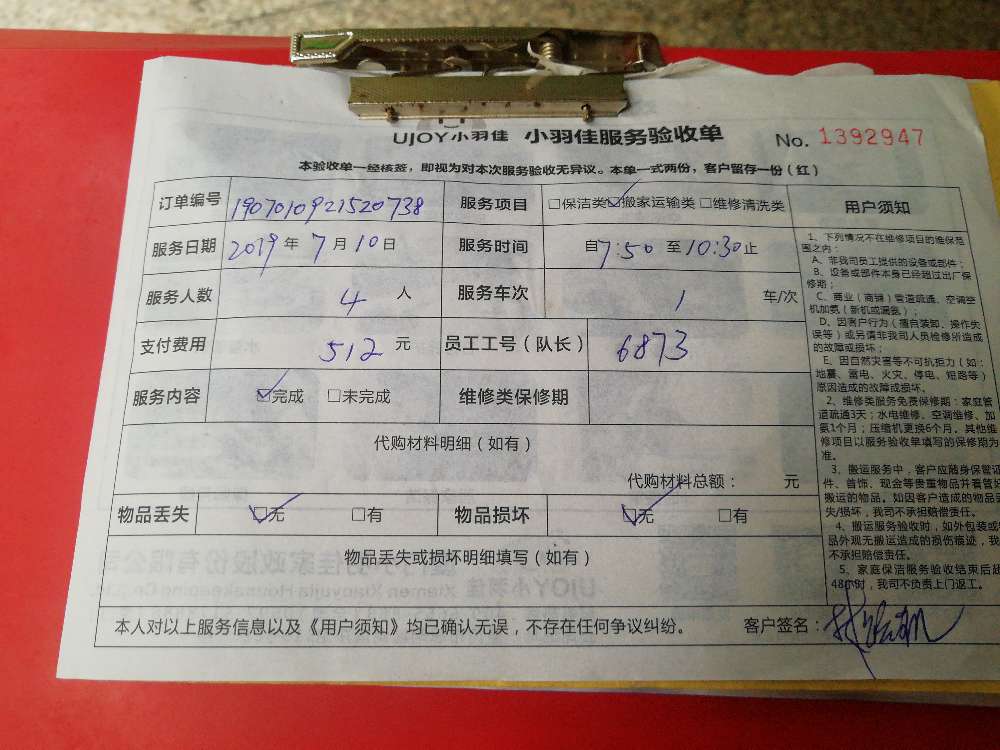 UJOY小羽佳 小羽佳服务验收单 No. 1392947
本验收单一经核签，即视为对本次服务验收无异议。本单一式两份，客户留存一份（红）
订单编号 1907010921520738 服务项目 □保洁类 ☑搬家运输类 □维修清洗类
服务日期 2019年7月10日 服务时间 自7:50至10:30止
服务人数 4 人 服务车次 1 车/次
支付费用 512 元 员工工号（队长） 6873
服务内容 ☑完成 □未完成 维修类保修期
代购材料明细（如有）
代购材料总额： 元
物品丢失 ☑无 □有 物品损坏 ☑无 □有
物品丢失或损坏明细填写（如有）
本人对以上服务信息以及《用户须知》均已确认无误，不存在任何争议纠纷。 客户签名：
用户须知
1、下列情况不在维修项目的维保范
围之内：
A、非我司员工提供的设备或部件；
B、设备或部件本身已经超过出厂保
修期；
C、商业（商铺）管道疏通、空调整
机加氨（新机或漏氨）；
D、因客户行为（擅自装卸、操作失
误等）或另请非我司人员检修所造成
的故障或损坏；
E、因自然灾害等不可抗拒力（如：
地震、雷电、火灾、停电、短路等）
原因造成的故障或损坏。
2、维修类服务免费保修期：家庭管
道疏通3天；水电维修、空调维修、加
氨1个月；压缩机更换6个月。其他维
修项目以服务验收单填写的保修期为
准。
3、搬运服务中，客户应随身保管证
件、首饰、现金等贵重物品并看管好
搬运的物品。如因客户造成的物品丢
失/损坏，我司不承担赔偿责任。
4、搬运服务验收时，如外包装或
品外观无搬运造成的损伤痕迹，我
不承担赔偿责任。
5、家庭保洁服务验收结束后超
48小时，我司不负责上门返工。